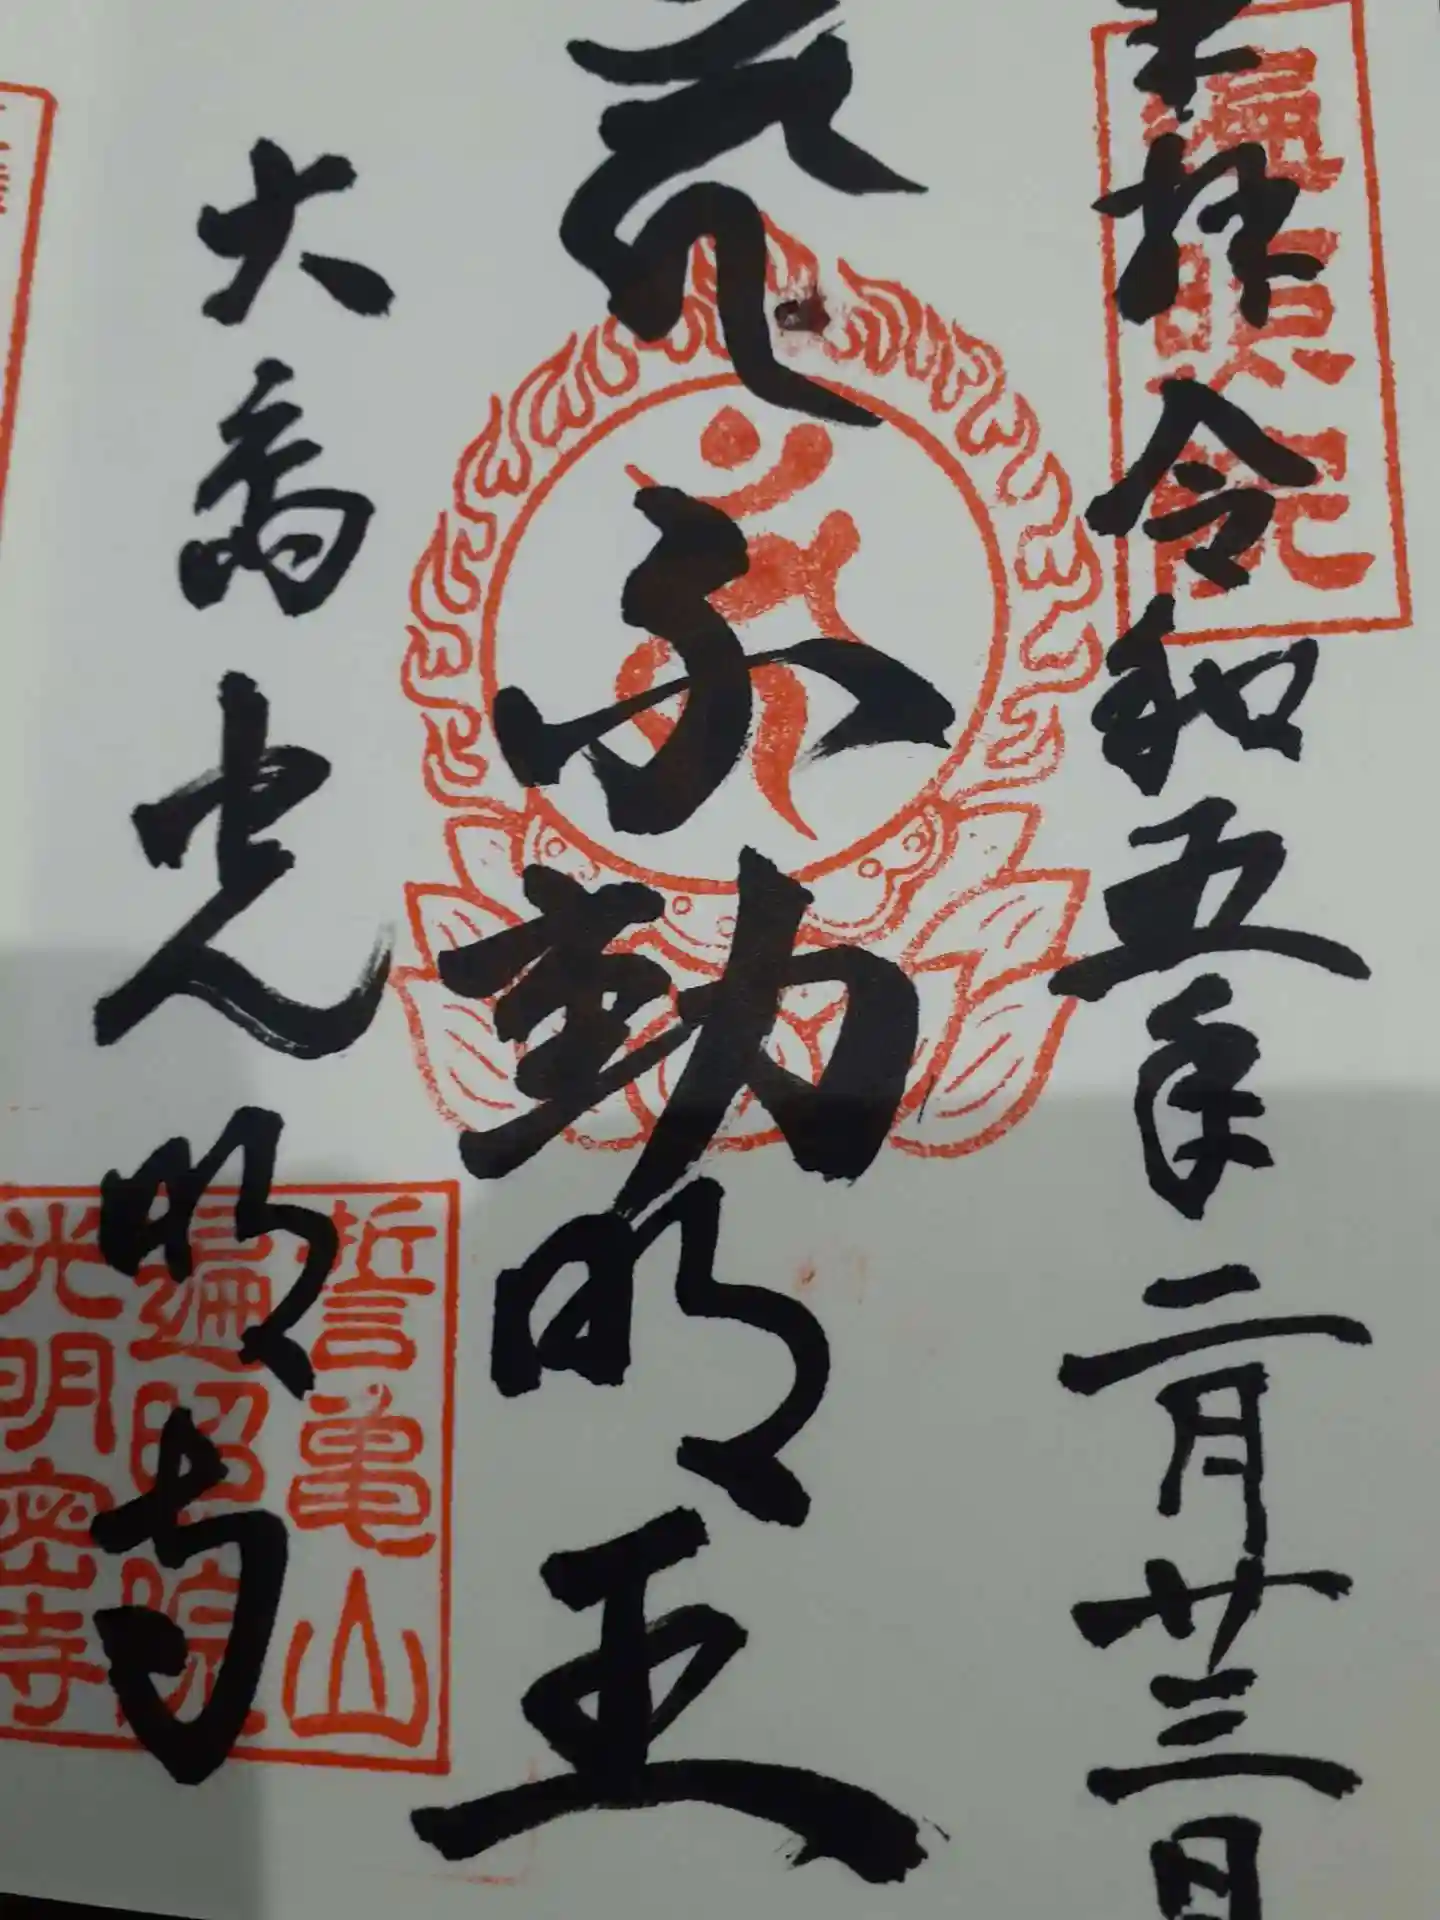 奉拝 令和五年二月廿三日
遍照院
不動明王
大高 光明寺
誓亀山
遍照院
光明密寺